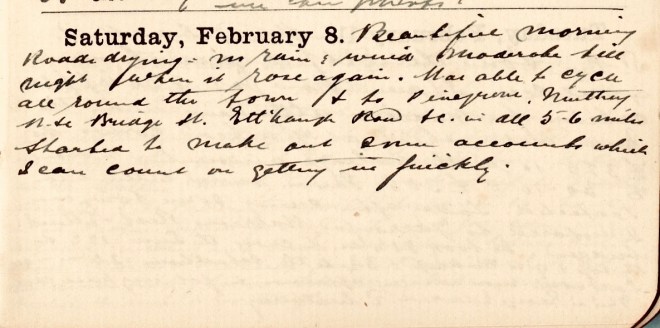 Saturday, February 8. Beautiful morning
Roads drying - no rain & wind moderate till
night when it rose again. Was able to cycle
all round the town & to Pinegrove,
Bridge St. Ettrickhaugh Road &c. in all 5-6 miles
Started to make out some accounts which
I can count on getting in quickly.